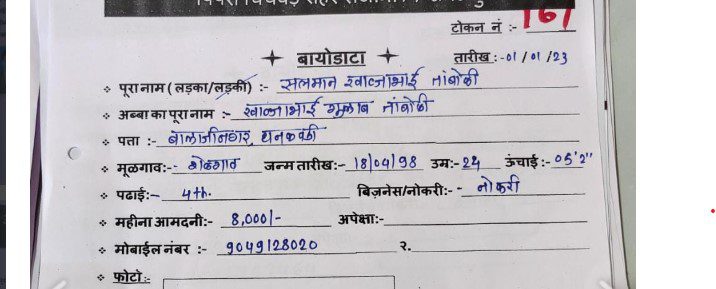 टोकन नं :- 161
बायोडाटा
तारीख :- 01/01/23
पूरा नाम (लड़का/लड़की) :- सलमान ख्वाजाभाई तांबोळी
अब्बा का पूरा नाम :- ख्वाजाभाई गुलाब तांबोळी
पत्ता :- बालाजीनगर, धनकवडी
मूळगाव:- जन्म तारीख:- 18/04/98 उम्र:- 24 ऊंचाई:- 05'2"
पढाई:- 4th. बिज़नेस/नोकरी:- नोकरी
महीना आमदनी:- 8,000/- अपेक्षा:-
मोबाईल नंबर :- 9049128020 २.
फ़ोटो:-